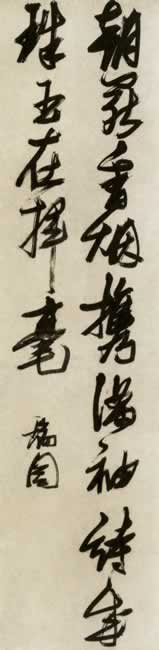 朝罷香烟携滿袖詩成
珠玉在揮毫
瑞圖